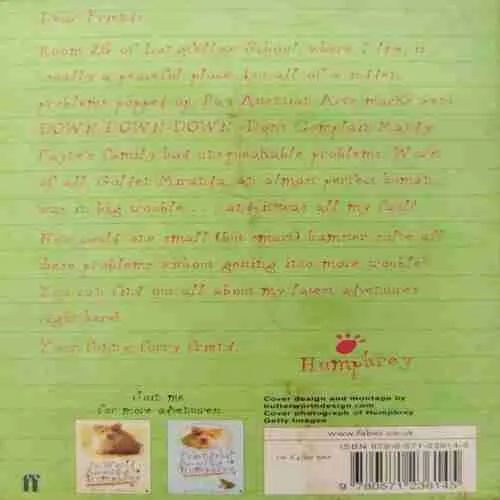 Dear Friend,
Room 26 of Longfellow School, where I live, is
usually a peaceful place, but all of a sudden,
problems popped up. Pay Attention Art's marks went
DOWN-DOWN-DOWN. Don't Complain Mandy
Payne's family had unsqueakable problems. Worst
of all, Golden Miranda, an almost perfect human,
was in big trouble . . . and it was all my fault!
How could one small (but smart) hamster solve all
these problems without getting into more trouble?
You can find out all about my latest adventures
right here!
Your Funny Furry Friend,
Humphrey
Visit me
for more adventures
Cover design and montage by
butterworthdesign.com
Cover photograph of Humphrey
Getty Images
www.faber.co.uk
ISBN 978-0-571-23814-5
ff
9 780571 238145